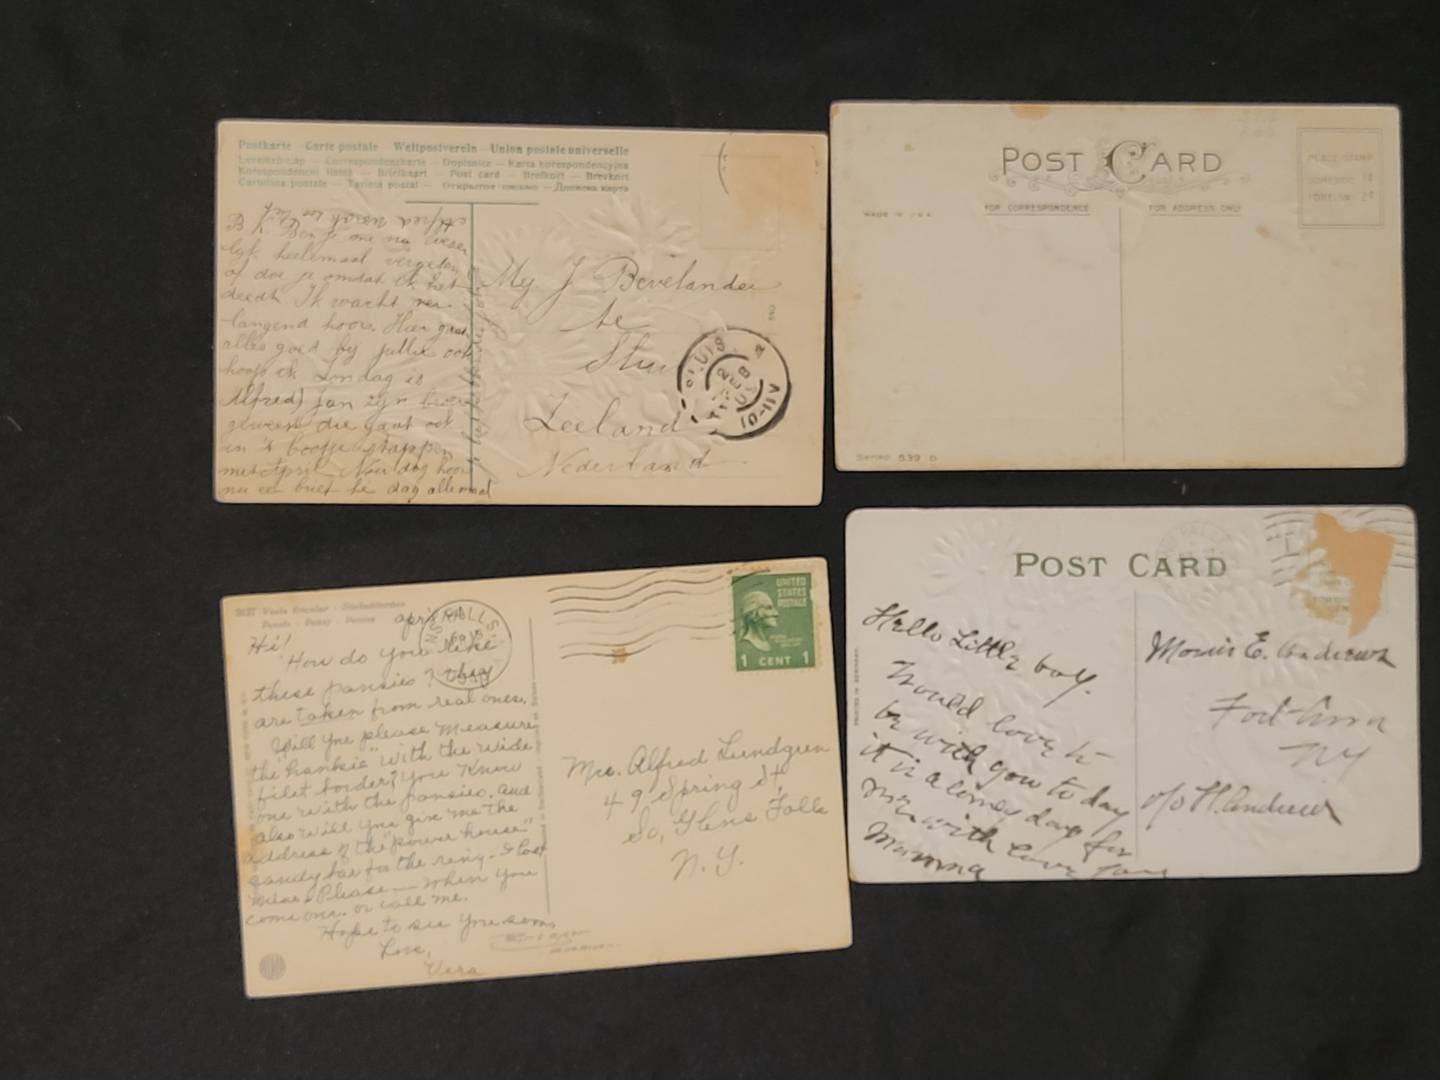 Postkarte - Carte postale - Weltpostverein - Union postale universelle
Levelező-Lap - Correspondenzkarte - Dopisnice - Karta korespondencyjna
Korespondenční lístek - Briefkaart - Post card - Brefkort - Brevkort
Cartolina postale - Tarjeta postal - Открытое письмо - Дописна карта
Alfred
B.K. Ben je me nu
heelemaal vergeten
of doe je omdat ik het
deedt. Ik wacht ver-
langend hoor. Hier gaat
alles goed bij jullie ook
hoop ik Zondag is
Alfred
geweest die gaat ook
in 't bootje stappen
met April Nou dag hoor
dag allemaal
J Bevelander
te
Zeeland
Nederland
SLUIS
2 FEB
10-11V
POST CARD
MADE IN U.S.A.
FOR CORRESPONDENCE
FOR ADDRESS ONLY
PLACE STAMP
DOMESTIC 1¢
FOREIGN 2¢
539 D
Hi!
How do you like
these pansies? They
are taken from real ones.
Will you please measure
the "hankie" with the wide
filet border? You know
one with the pansies. and
also will you give me the
address of the "power house"
candy bar for the ring. I lost
mine. Please - when you
come over or call me.
Hope to see you soon,
Love,
Vera
UNITED
STATES
POSTAGE
1 CENT 1
Mrs. Alfred Lundgren
49 Spring St.
So. Glens Falls
N.Y.
POST CARD
PRINTED IN GERMANY
Hello Little boy.
Would love to
be with you to day
it is a lonely day for
me. with love from
Mamma
Morris E. Andrews
Fort Ann
N.Y
c/o H. Andrews